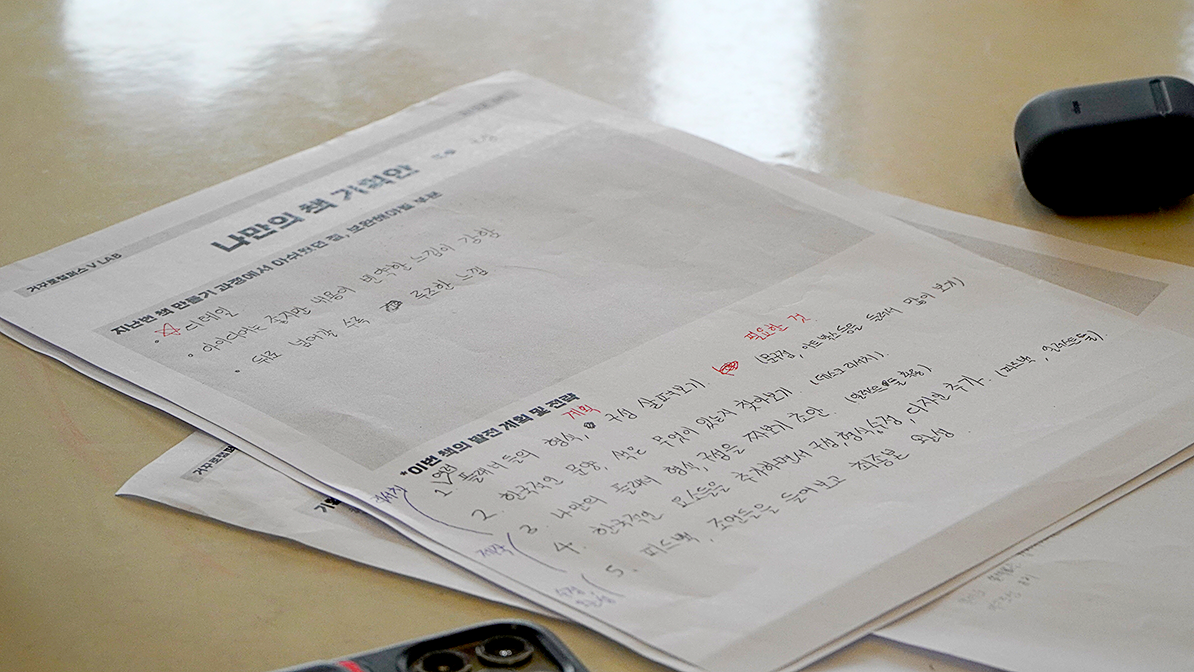 거꾸로캠퍼스 V LAB
나만의 책 기획안
지난번 책 만들기 과정에서 아쉬웠던 점, 보완해야될 부분
• ☆ 디테일
• 아이디어는 좋지만 내용이 빈약한 느낌이 강함
• 뒤로 넘어갈 수록 루즈한 느낌
*이번 책의 발전 계획 및 전략
계획
필요한 것
1. 플래너들의 형식, 구성 살펴보기. (문구점, 아트박스등을 들려서 많이 보기)
2. 한국적인 문양, 색은 무엇이 있는지 찾아보기 (데스크 리서치).
3. 나만의 플래너 형식, 구성을 짜보기 초안.
4. 한국적인 요소들을 추가하면서 구성, 형식수정, 디자인 추가.
5. 피드백, 조언들을 들어보고 최종본 완성.
제작
수정
거꾸로캠퍼스